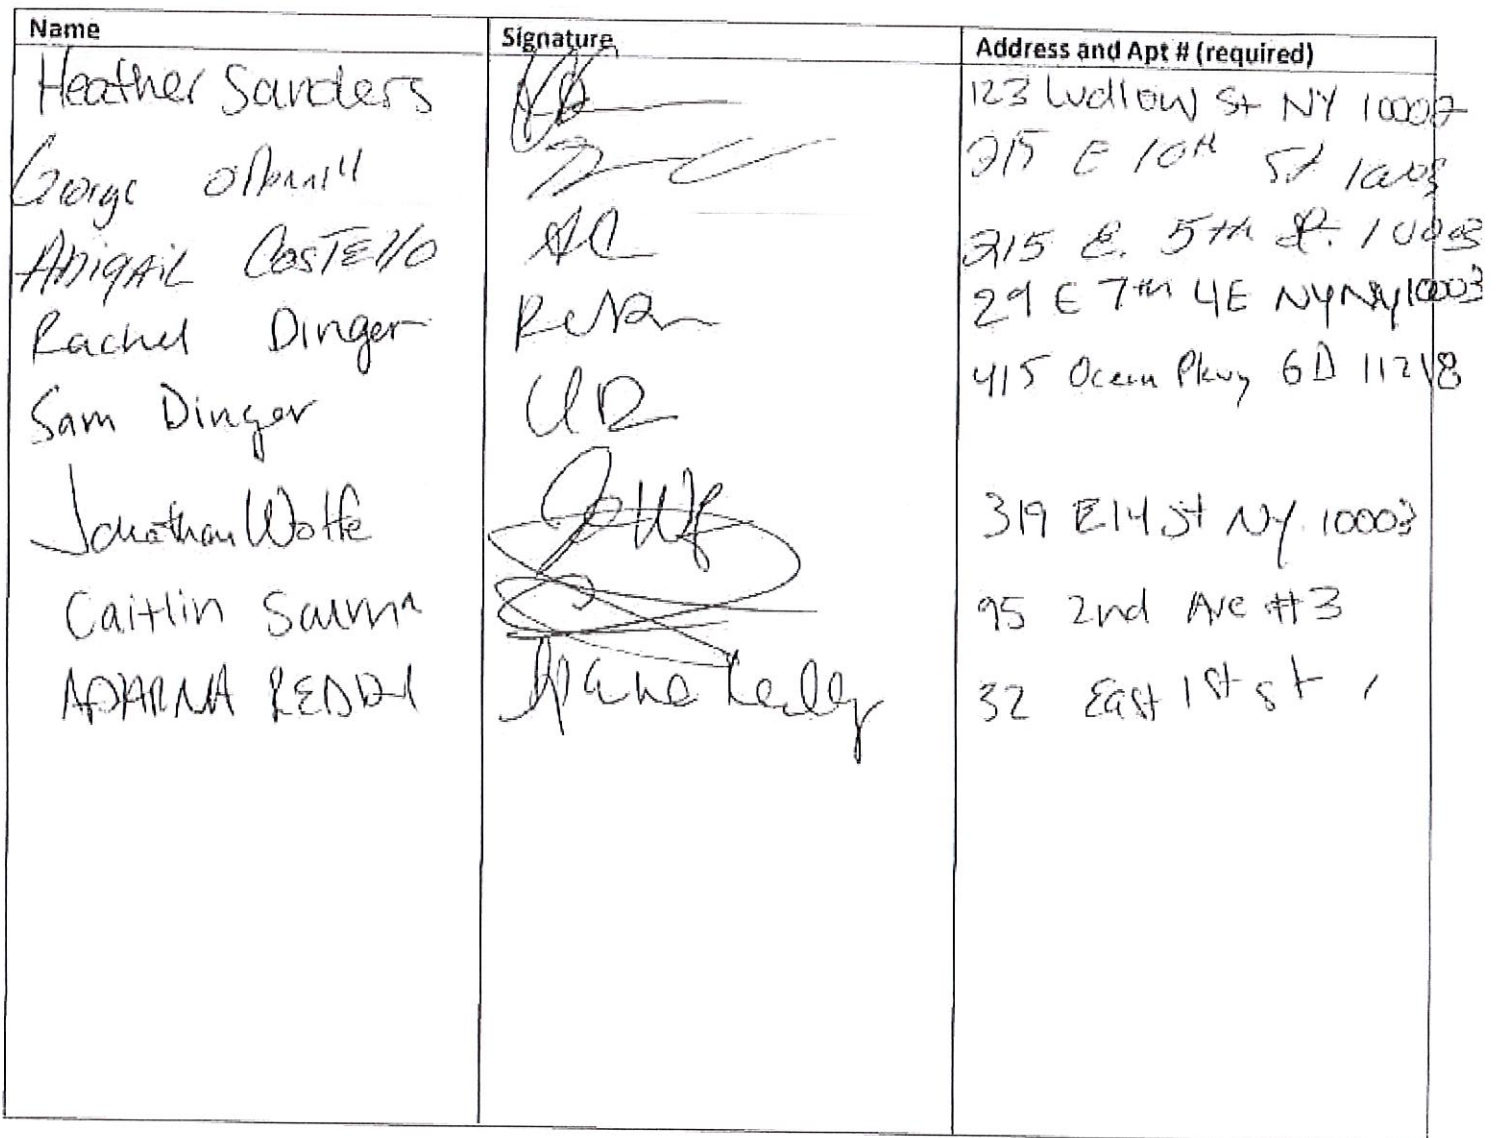 Name Signature Address and Apt # (required)
Heather Sanders 123 Ludlow St NY 10002
George 215 E 10th St 10003
Abigail Costello AC 215 E. 5th St. 10003
Rachel Dinger 29 E 7th 4E NY NY 10003
Sam Dinger 415 Ocean Pkwy 6D 11218
Jonathan Wolfe 319 E 14 St NY 10003
Caitlin 95 2nd Ave #3
APARNA REDDY 32 East 1st St